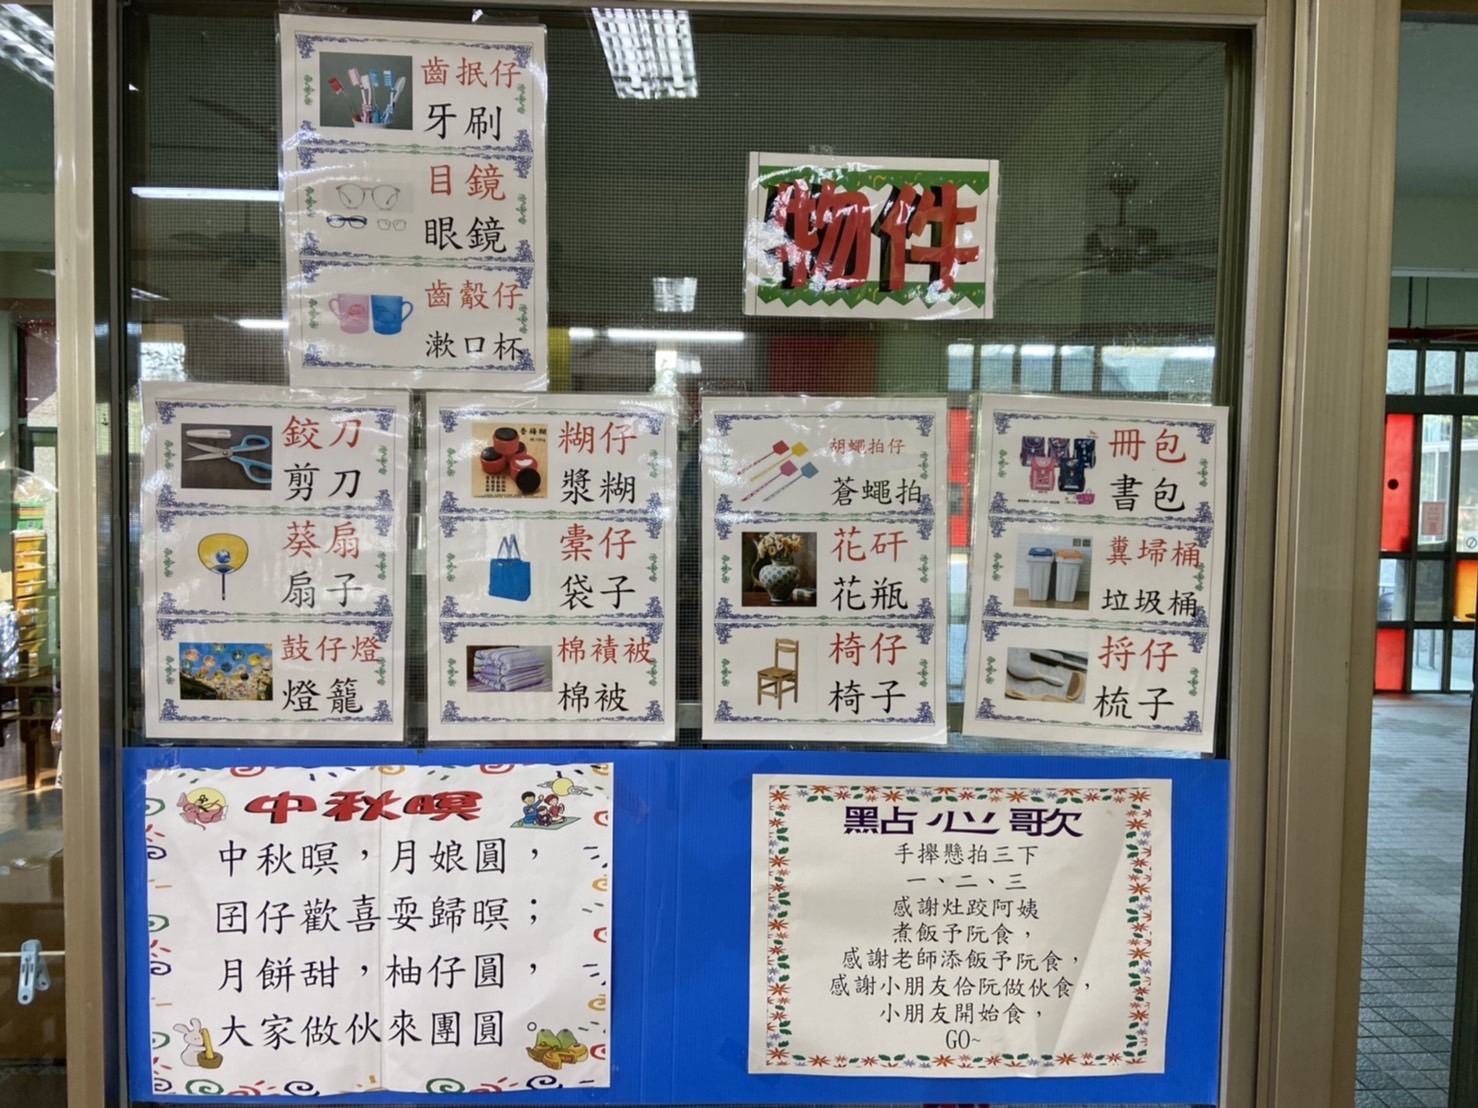 齒抿仔
牙刷
目鏡
眼鏡
齒觳仔
漱口杯
物件
鉸刀
剪刀
葵扇
扇子
鼓仔燈
燈籠
糊仔
漿糊
橐仔
袋子
棉襀被
棉被
胡蠅拍仔
蒼蠅拍
花矸
花瓶
椅仔
椅子
冊包
書包
糞埽桶
垃圾桶
捋仔
梳子
中秋暝
中秋暝，月娘圓，
囝仔歡喜耍歸暝；
月餅甜，柚仔圓，
大家做伙來團圓。
點心歌
手攑懸拍三下
一、二、三
感謝灶跤阿姨
煮飯予阮食，
感謝老師添飯予阮食，
感謝小朋友佮阮做伙食，
小朋友開始食，
GO~